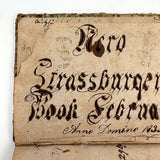 Nero
Strassburger
Book Februa
Anno Domino 183